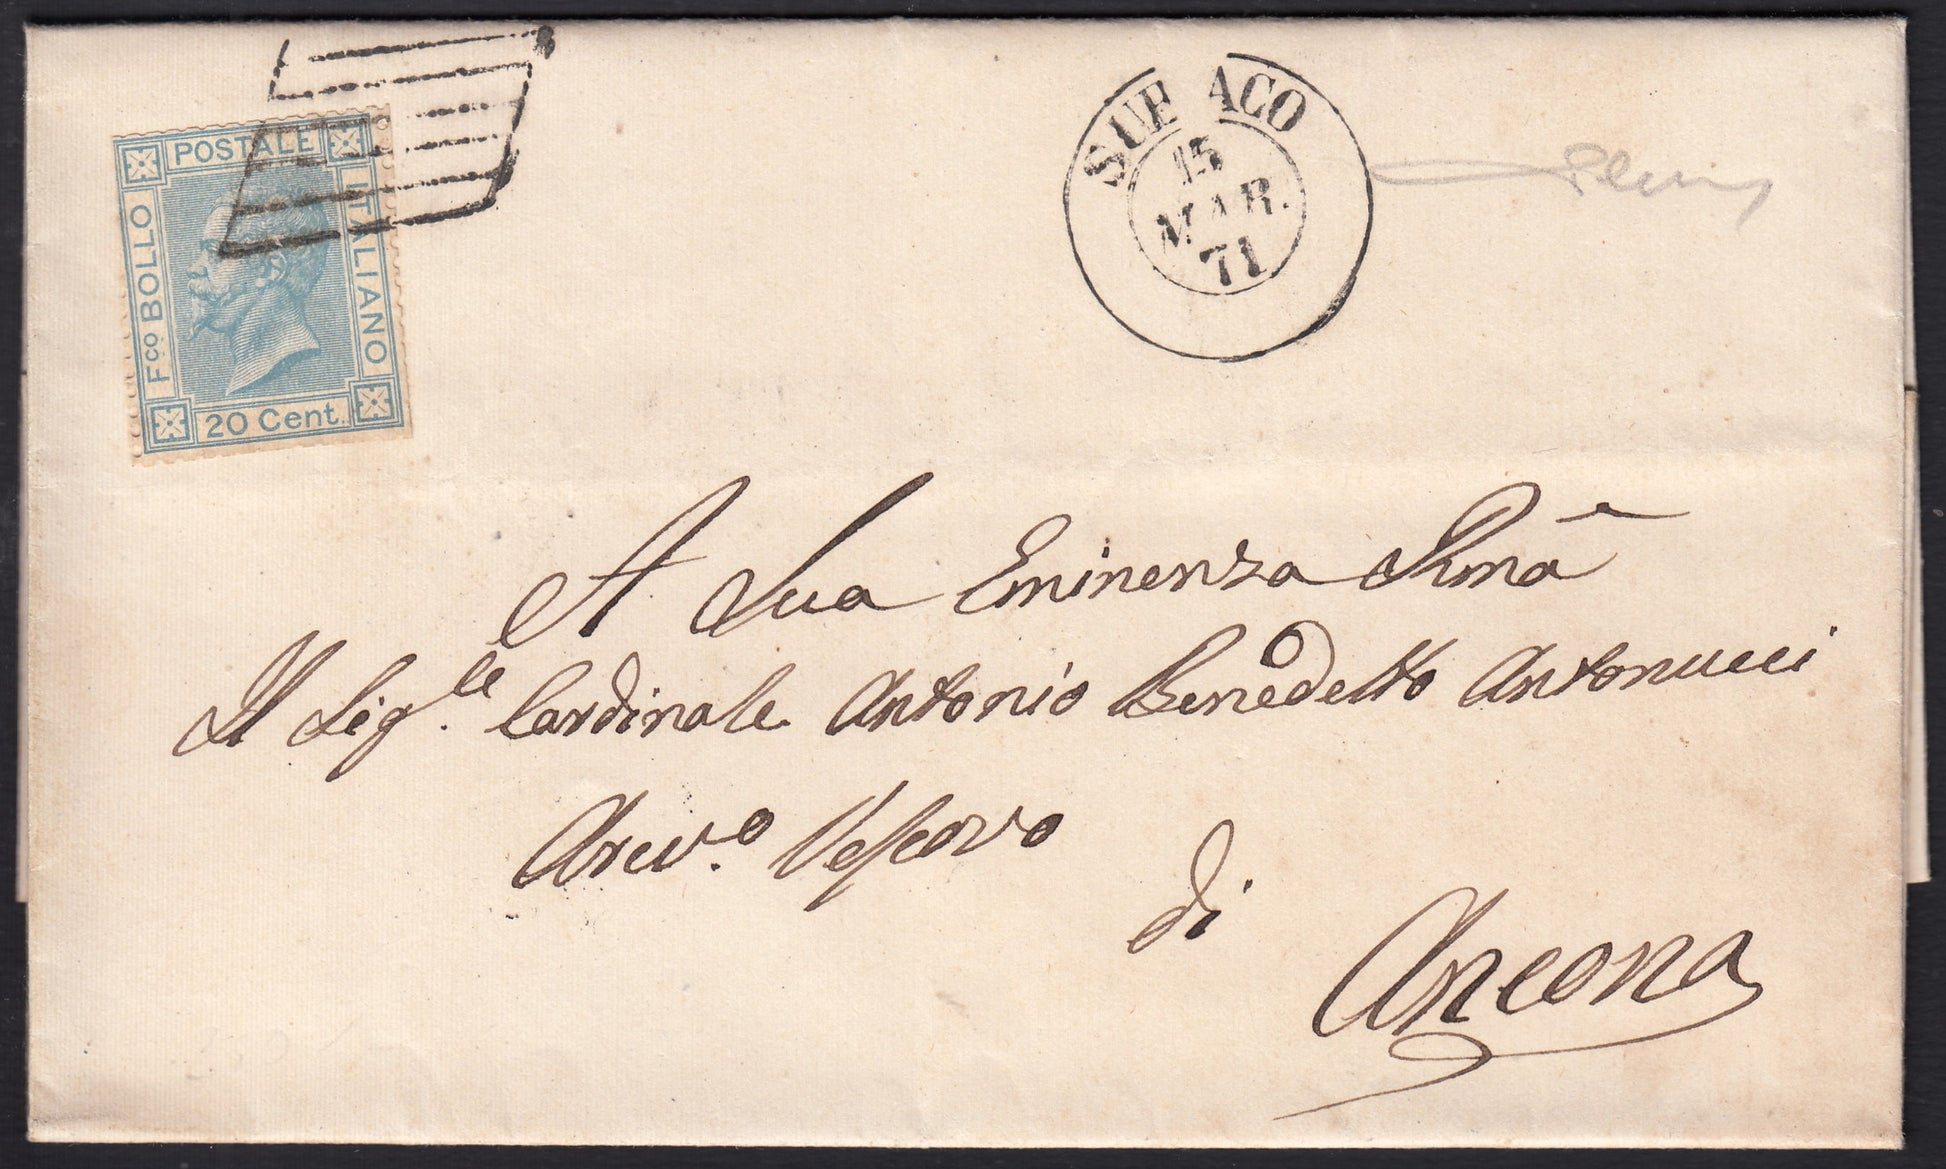 POSTALE
Fco BOLLO
ITALIANO
20 Cent.
SUB ACO
15
MAR.
71
A Sua Eminenza Rma
Il Sig.le Cardinale Antonio Benedetto Antonucci
Arciv.o Vescovo
di
Ancona